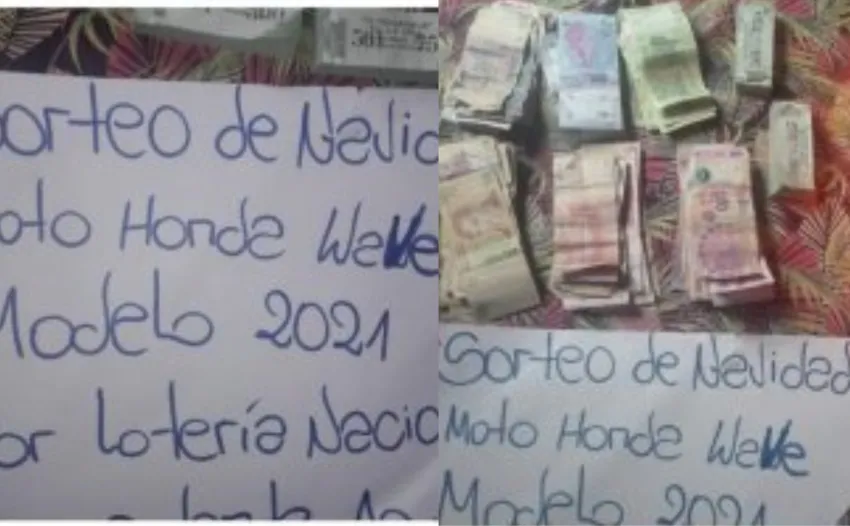 orteo de Navid
oto Honda Wave
Modelo 2021
or Lotería Nacio
Sorteo de Navidad
Moto Honda Wave
Modelo 2021